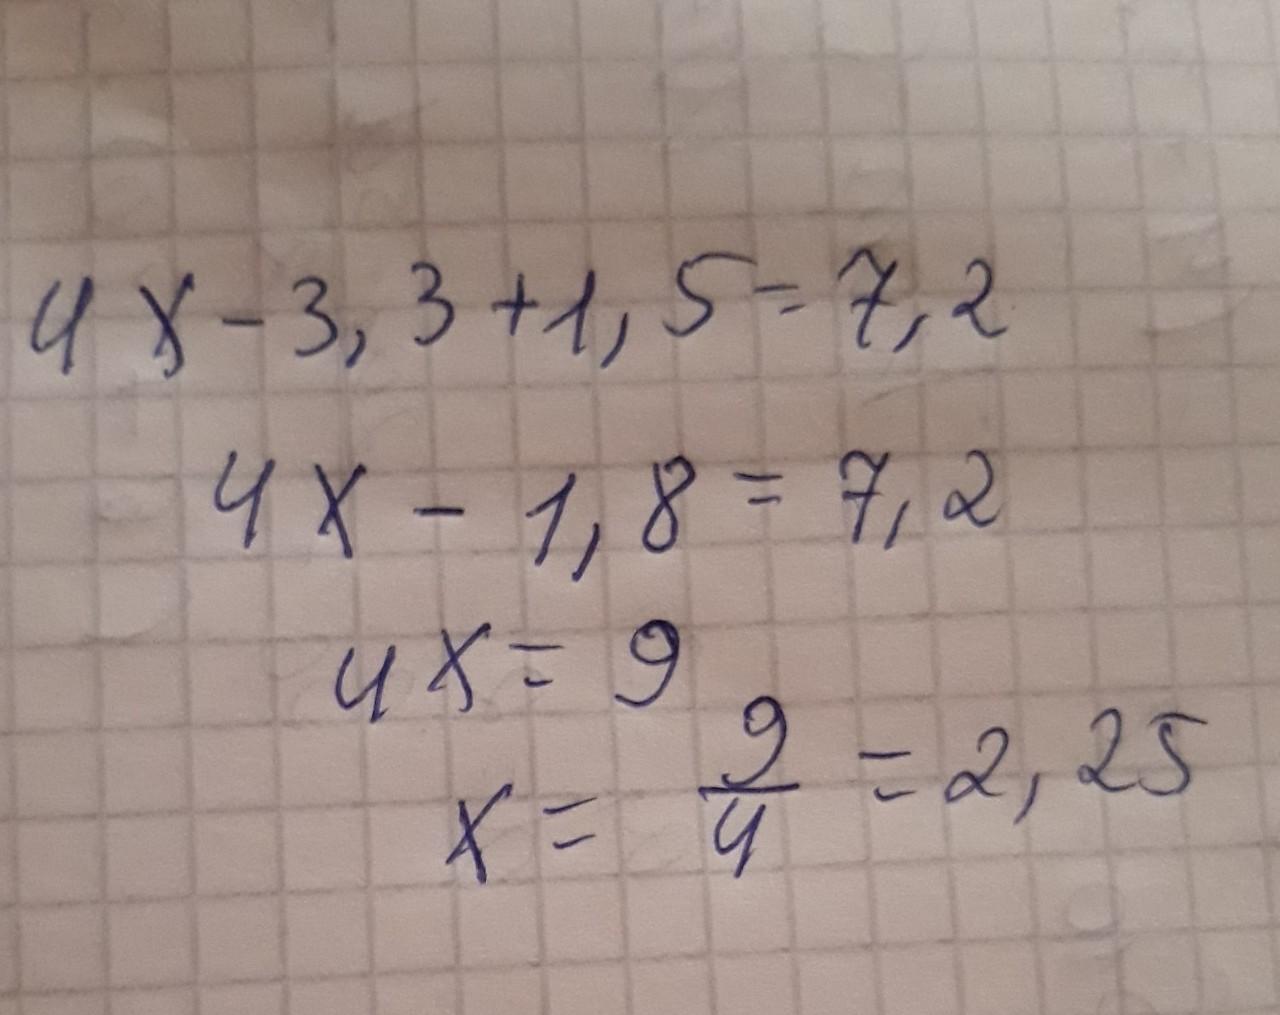 4x-3,3+1,5=7,2
4x-1,8=7,2
4x=9
x=9/4=2,25